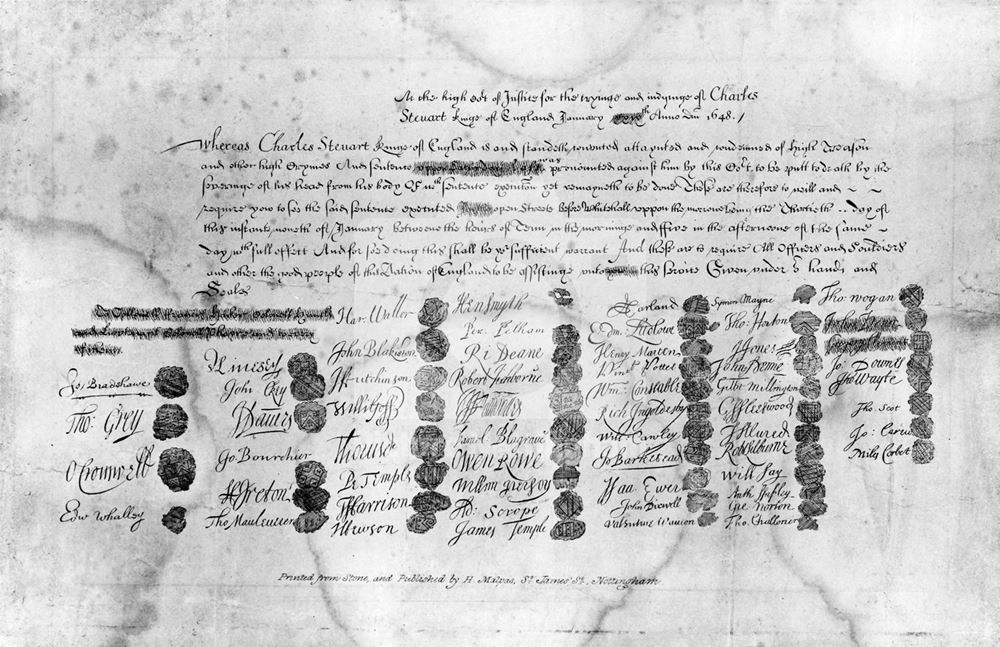 At the high Cort of Justice for the tryinge and iudginge of Charles
Steuart kinge of England January th Anno Dm 1648./
Whereas Charles Steuart kinge of England is and standeth convicted attaynted and condemned of high Treason
and other high Crymes And sentence was pronounced against him by this Cort to be putt to death by the
severinge of his head from his body Of wch sentence execucon yet remayneth to be done These are therefore to will and
require you to see the said sentence executed open Streete before Whitehall uppon the morrowe being the Thirtieth day of
this instante moneth of January betweene the houres of Tenn in the morninge and ffive in the afternoone of the same
day wth full effect And for soe doing this shall be yor sufficient warrant And these are to require All Officers and Souldiers
and other the good people of this Nation of England to be assistinge unto this service Given under or hands and
Seales
Jo Bradshawe
Tho: Grey
O Cromwell
Edw Whalley
M Livesey
John Okey
J Danvers
Jo Bourchier
H Ireton
Tho Mauleverer
Har: Waller
John Blakiston
J Hutchinson
Willi Goffe
Tho Pride
Pe Temple
T Harrison
J Hewson
Hen Smyth
Per. Pelham
Ri Deane
Robert Tichborne
H Edwardes
Daniel Blagrave
Owen Rowe
William Purefoy
Ad: Scrope
James Temple
A Garland
Edm. Ludlowe
Henry Marten
Vinct Potter
Wm: Constable
Rich Ingoldesby
Will Cawley
Jo Barkstead
Isaa Ewer
John Dixwell
Valentine Wauton
Symon Mayne
Tho Horton
J Jones
John Moore
Gilbt Millington
G Fleetwood
J Alured
Rob Lilburne
Will Say
Anth Stapley
Gre Norton
Tho. Challoner
Tho: Wogan
Jo: Downes
Tho Wayte
Tho: Scot
Jo: Carew
Miles Corbet
Printed from Stone, and Published by H. Malpas, St. James' St., Nottingham.